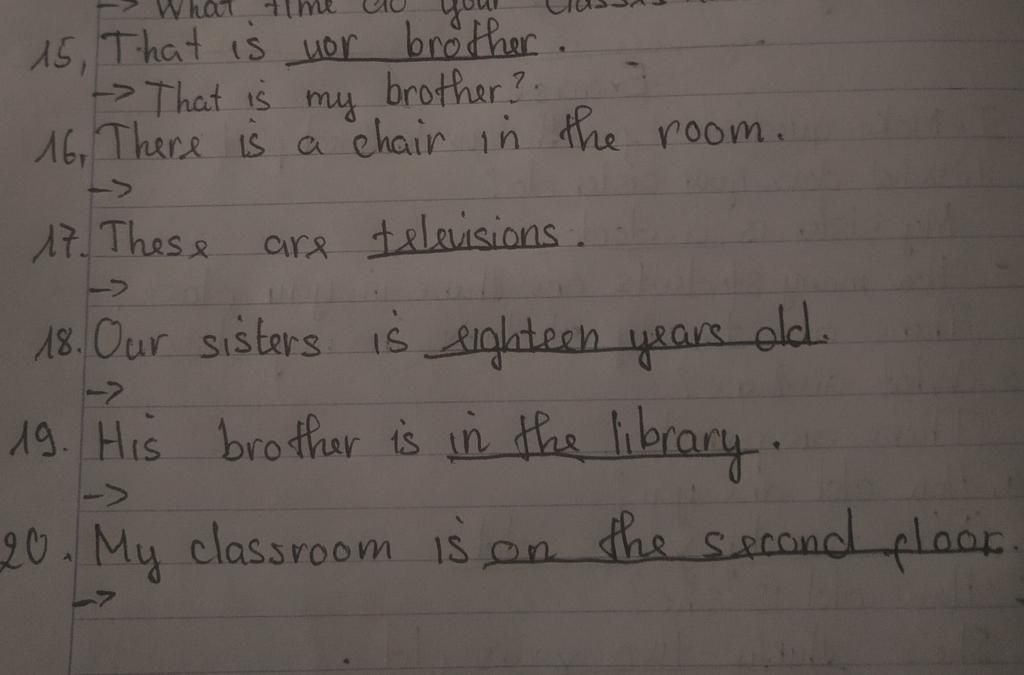 -> What time do your
15, That is uor brother.
-> That is my brother?
16, There is a chair in the room.
->
17. These are televisions.
->
18. Our sisters is eighteen years old.
->
19. His brother is in the library.
->
20. My classroom is on the second floor.
->